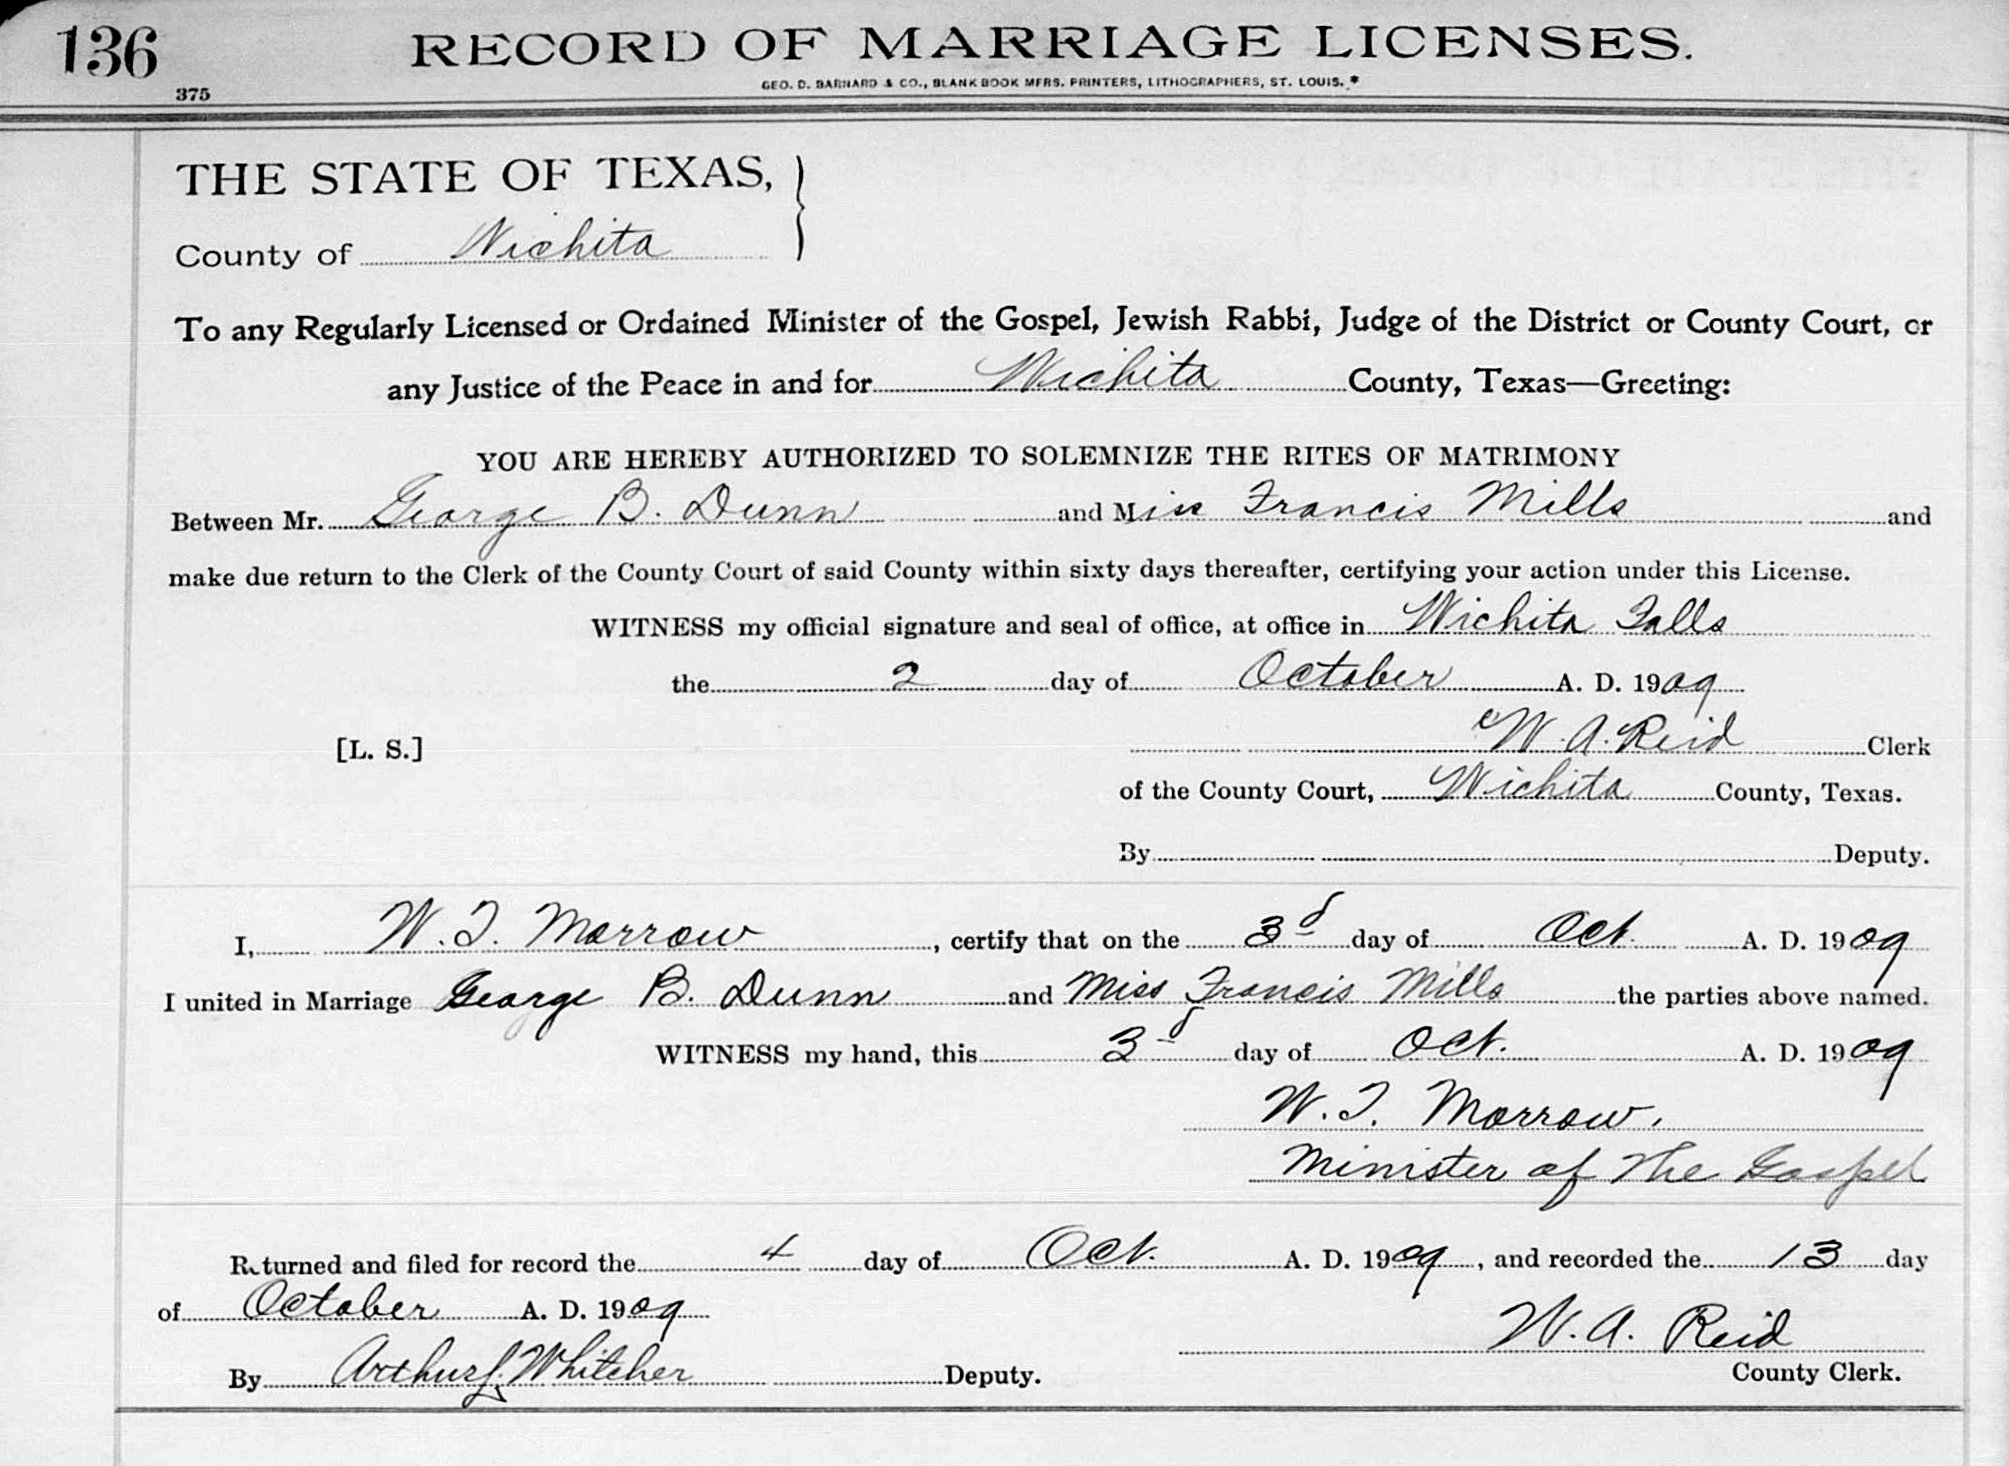 136
RECORD OF MARRIAGE LICENSES.
375
GEO. D. BARNARD & CO., BLANK BOOK MFRS. PRINTERS, LITHOGRAPHERS, ST. LOUIS.
THE STATE OF TEXAS,
County of Wichita
To any Regularly Licensed or Ordained Minister of the Gospel, Jewish Rabbi, Judge of the District or County Court, or
any Justice of the Peace in and for Wichita County, Texas—Greeting:
YOU ARE HEREBY AUTHORIZED TO SOLEMNIZE THE RITES OF MATRIMONY
Between Mr. George B. Dunn and Miss Francis Mills and
make due return to the Clerk of the County Court of said County within sixty days thereafter, certifying your action under this License.
WITNESS my official signature and seal of office, at office in Wichita Falls
the 2 day of October A. D. 1909
[L. S.] W. A. Reid Clerk
of the County Court, Wichita County, Texas.
By Deputy.
I, W. T. Morrow, certify that on the 3d day of Oct. A. D. 1909
I united in Marriage George B. Dunn and Miss Francis Mills the parties above named.
WITNESS my hand, this 3d day of Oct. A. D. 1909
W. T. Morrow.
Minister of The Gospel
Returned and filed for record the 4 day of Oct. A. D. 1909, and recorded the 13 day
of October A. D. 1909
W. A. Reid
By Arthur L. Whitcher Deputy. County Clerk.